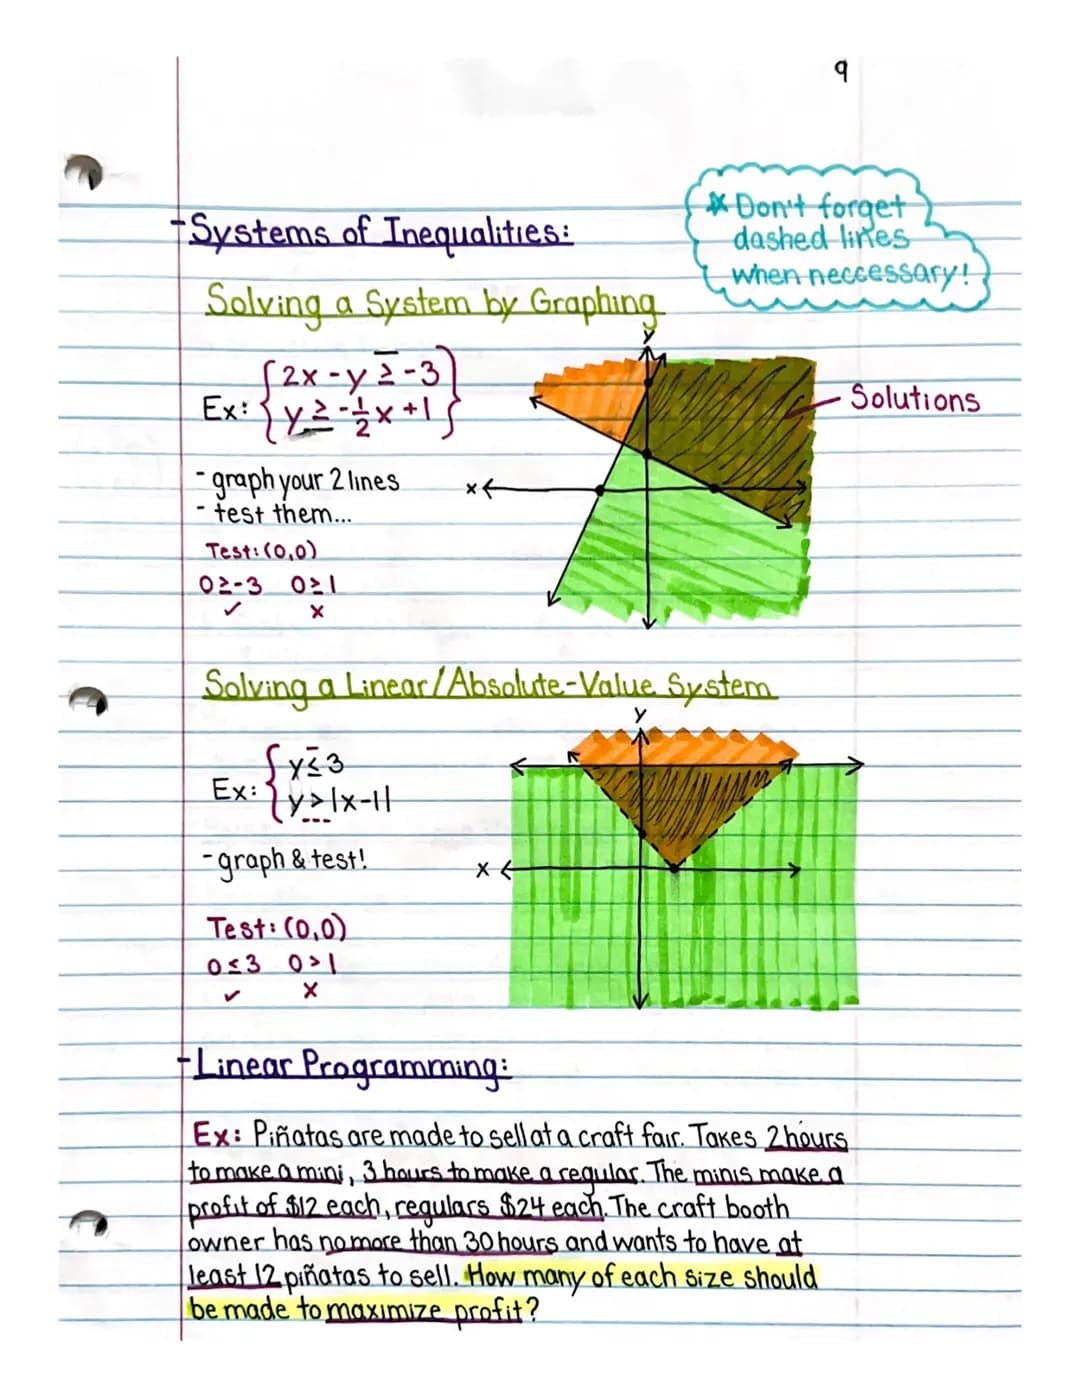 9
-Systems of Inequalities:
* Don't forget
dashed lines
when neccessary!
Solving a System by Graphing
Ex: { 2x - y ≥ -3
y ≥ -1/2 x + 1 }
y
Solutions
x
- graph your 2 lines
- test them...
Test: (0,0)
0≥-3 0≥1
✓ x
Solving a Linear/Absolute-Value System
y
Ex: { y ≤ 3
y > |x-1|
- graph & test!
x
Test: (0,0)
0≤3 0>1
✓ x
-Linear Programming:
Ex: Piñatas are made to sell at a craft fair. Takes 2 hours
to make a mini, 3 hours to make a regular. The minis make a
profit of $12 each, regulars $24 each. The craft booth
owner has no more than 30 hours and wants to have at
least 12 piñatas to sell. How many of each size should
be made to maximize profit?